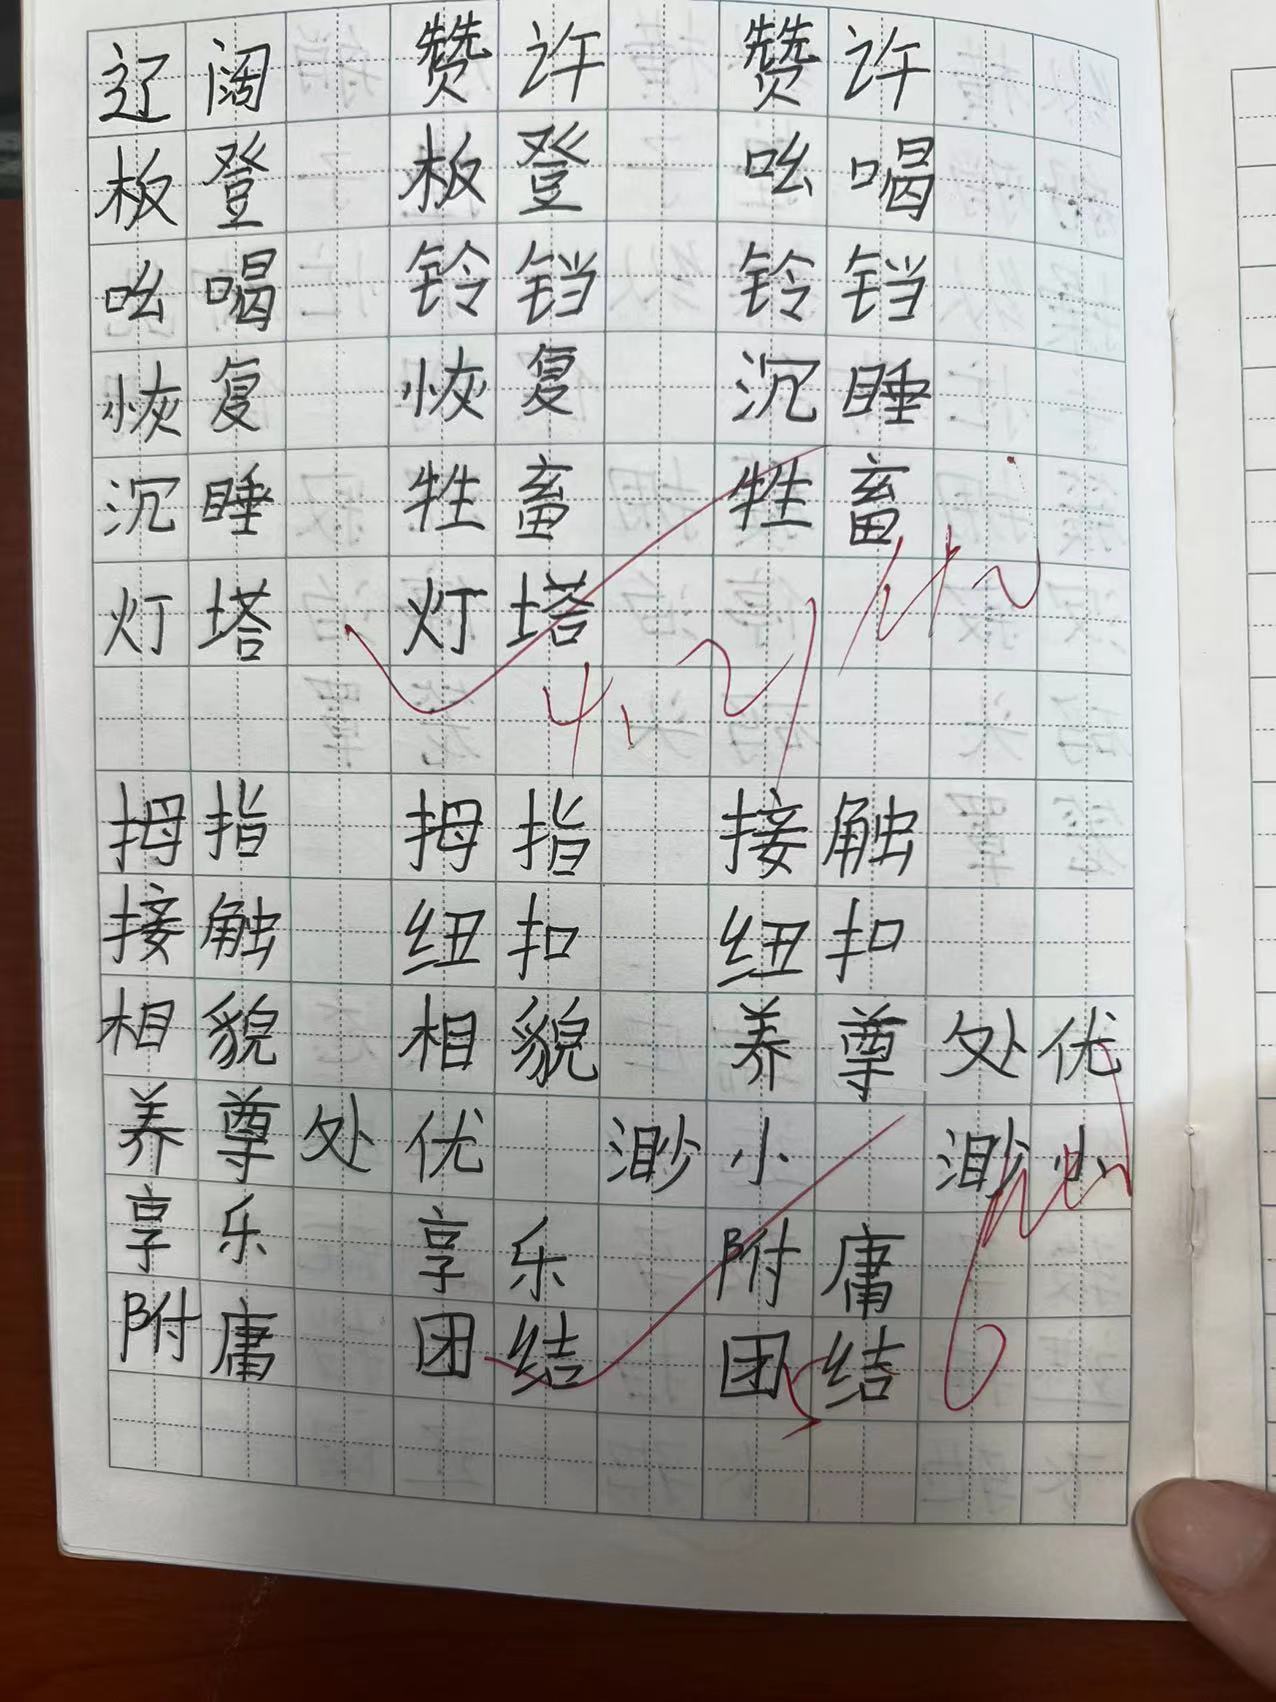 辽阔 赞许 赞许
板登 板登 吆喝
吆喝 铃铛 铃铛
恢复 恢复 沉睡
沉睡 牲畜 牲畜
灯塔 灯塔
拇指 拇指 接触
接触 纽扣 纽扣
相貌 相貌 养尊处优
养尊处优 渺小 渺小
享乐 享乐 附庸
附庸 团结 团结